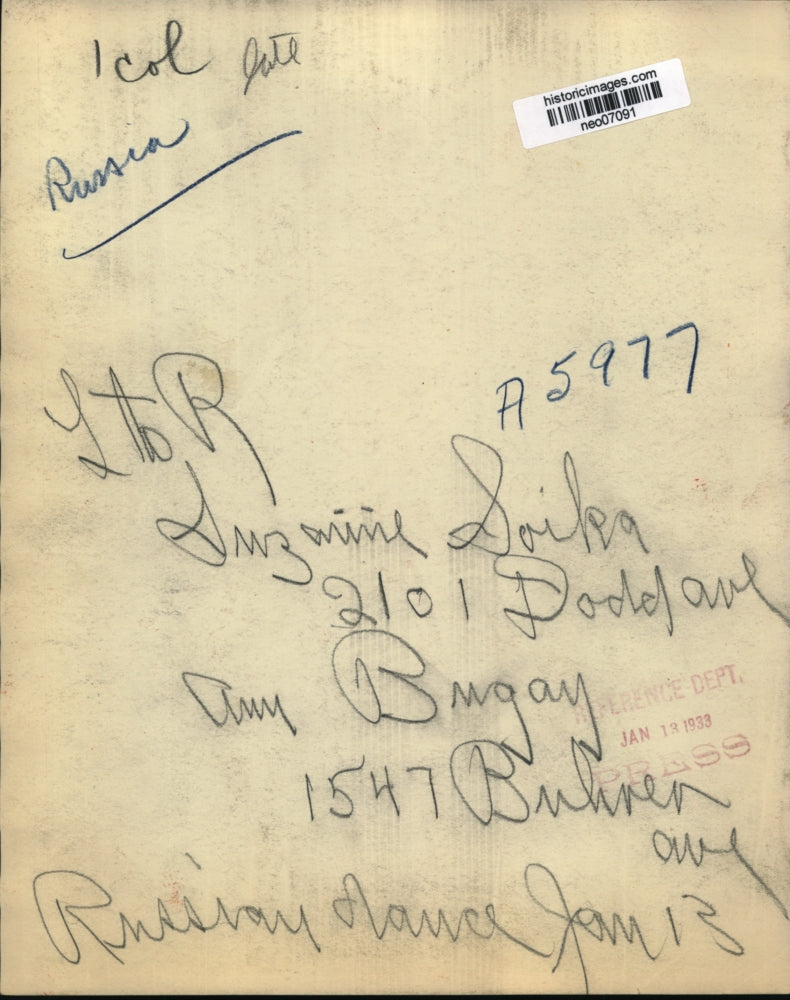 1 col late
historicimages.com
neo07091
Russia
A5977
L to R
Suzanine Soika
2101 Dodd ave
Ann Bugay
REFERENCE DEPT.
JAN 13 1933
PRESS
1547 Buhrer
ave
Russian dance Jan 13